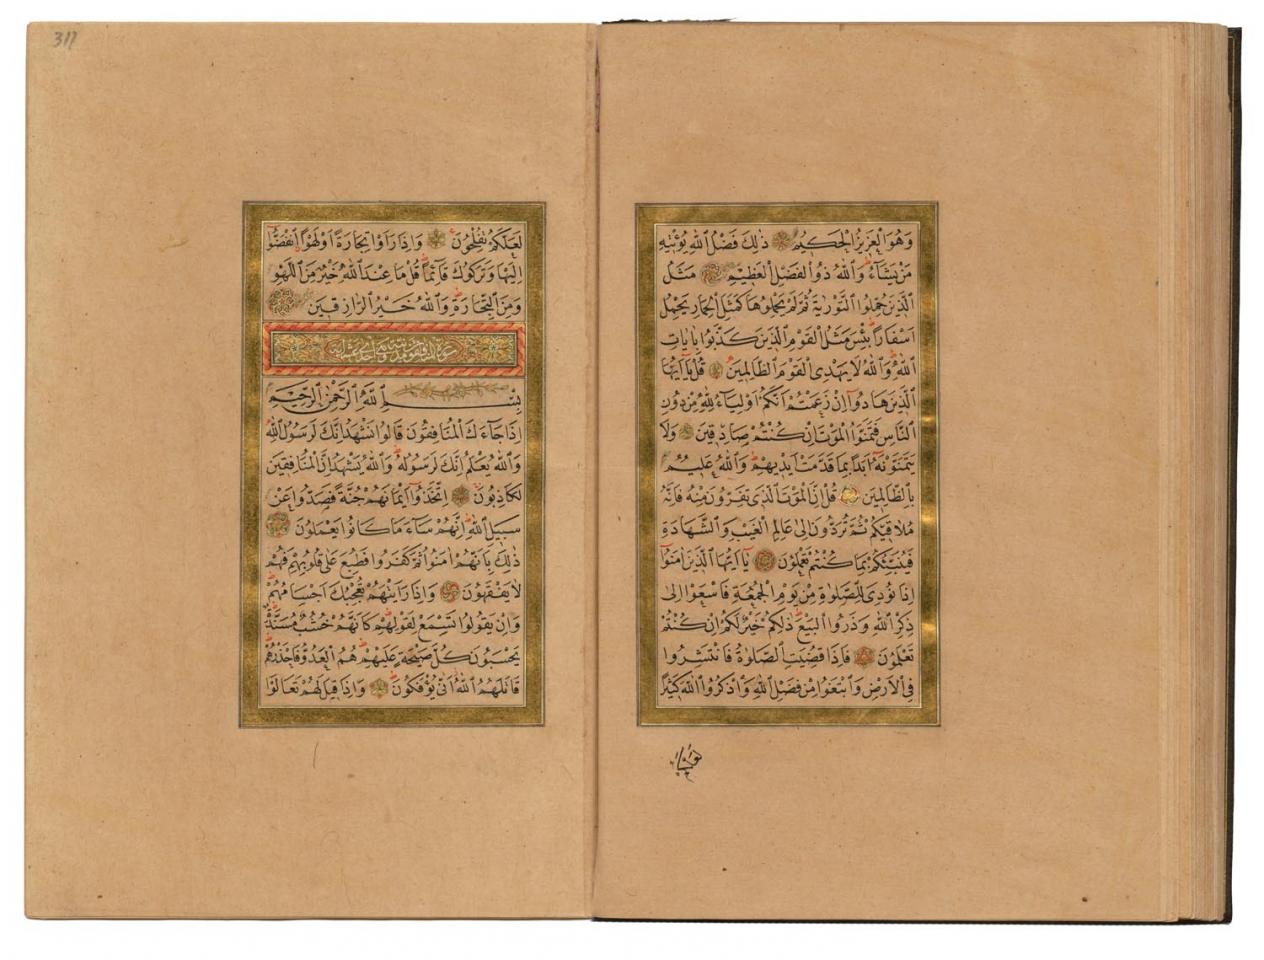 وَهُوَ الْعَزِيزُ الْحَكِيمُ ذٰلِكَ فَضْلُ اللّٰهِ يُؤْتِيهِ
مَنْ يَشَاءُ وَاللّٰهُ ذُو الْفَضْلِ الْعَظِيمِ مَثَلُ
الَّذِينَ حُمِّلُوا التَّوْرٰيةَ ثُمَّ لَمْ يَحْمِلُوهَا كَمَثَلِ الْحِمَارِ يَحْمِلُ
اَسْفَارًا بِئْسَ مَثَلُ الْقَوْمِ الَّذِينَ كَذَّبُوا بِاٰيَاتِ
اللّٰهِ وَاللّٰهُ لَا يَهْدِى الْقَوْمَ الظَّالِمِينَ قُلْ يَا اَيُّهَا
الَّذِينَ هَادُوا اِنْ زَعَمْتُمْ اَنَّكُمْ اَوْلِيَاءُ لِلّٰهِ مِنْ دُونِ
النَّاسِ فَتَمَنَّوُا الْمَوْتَ اِنْ كُنْتُمْ صَادِقِينَ وَلَا
يَتَمَنَّوْنَهُ اَبَدًا بِمَا قَدَّمَتْ اَيْدِيهِمْ وَاللّٰهُ عَلِيمٌ
بِالظَّالِمِينَ قُلْ اِنَّ الْمَوْتَ الَّذِى تَفِرُّونَ مِنْهُ فَاِنَّهُ
مُلَاقِيكُمْ ثُمَّ تُرَدُّونَ اِلٰى عَالِمِ الْغَيْبِ وَالشَّهَادَةِ
فَيُنَبِّئُكُمْ بِمَا كُنْتُمْ تَعْمَلُونَ يَا اَيُّهَا الَّذِينَ اٰمَنُوا
اِذَا نُودِىَ لِلصَّلٰوةِ مِنْ يَوْمِ الْجُمُعَةِ فَاسْعَوْا اِلٰى
ذِكْرِ اللّٰهِ وَذَرُوا الْبَيْعَ ذٰلِكُمْ خَيْرٌ لَكُمْ اِنْ كُنْتُمْ
تَعْلَمُونَ فَاِذَا قُضِيَتِ الصَّلٰوةُ فَانْتَشِرُوا
فِى الْاَرْضِ وَابْتَغُوا مِنْ فَضْلِ اللّٰهِ وَاذْكُرُوا اللّٰهَ كَثِيرًا
311
لَعَلَّكُمْ تُفْلِحُونَ وَاِذَا رَاَوْا تِجَارَةً اَوْ لَهْوًا انْفَضُّوا
اِلَيْهَا وَتَرَكُوكَ قَائِمًا قُلْ مَا عِنْدَ اللّٰهِ خَيْرٌ مِنَ اللَّهْوِ
وَمِنَ التِّجَارَةِ وَاللّٰهُ خَيْرُ الرَّازِقِينَ
بِسْمِ اللّٰهِ الرَّحْمٰنِ الرَّحِيمِ
اِذَا جَاءَكَ الْمُنَافِقُونَ قَالُوا نَشْهَدُ اِنَّكَ لَرَسُولُ اللّٰهِ
وَاللّٰهُ يَعْلَمُ اِنَّكَ لَرَسُولُهُ وَاللّٰهُ يَشْهَدُ اِنَّ الْمُنَافِقِينَ
لَكَاذِبُونَ اِتَّخَذُوا اَيْمَانَهُمْ جُنَّةً فَصَدُّوا عَنْ
سَبِيلِ اللّٰهِ اِنَّهُمْ سَاءَ مَا كَانُوا يَعْمَلُونَ
ذٰلِكَ بِاَنَّهُمْ اٰمَنُوا ثُمَّ كَفَرُوا فَطُبِعَ عَلٰى قُلُوبِهِمْ فَهُمْ
لَا يَفْقَهُونَ وَاِذَا رَاَيْتَهُمْ تُعْجِبُكَ اَجْسَامُهُمْ
وَاِنْ يَقُولُوا تَسْمَعْ لِقَوْلِهِمْ كَاَنَّهُمْ خُشُبٌ مُسَنَّدَةٌ
يَحْسَبُونَ كُلَّ صَيْحَةٍ عَلَيْهِمْ هُمُ الْعَدُوُّ فَاحْذَرْهُمْ
قَاتَلَهُمُ اللّٰهُ اَنّٰى يُؤْفَكُونَ وَاِذَا قِيلَ لَهُمْ تَعَالَوْا